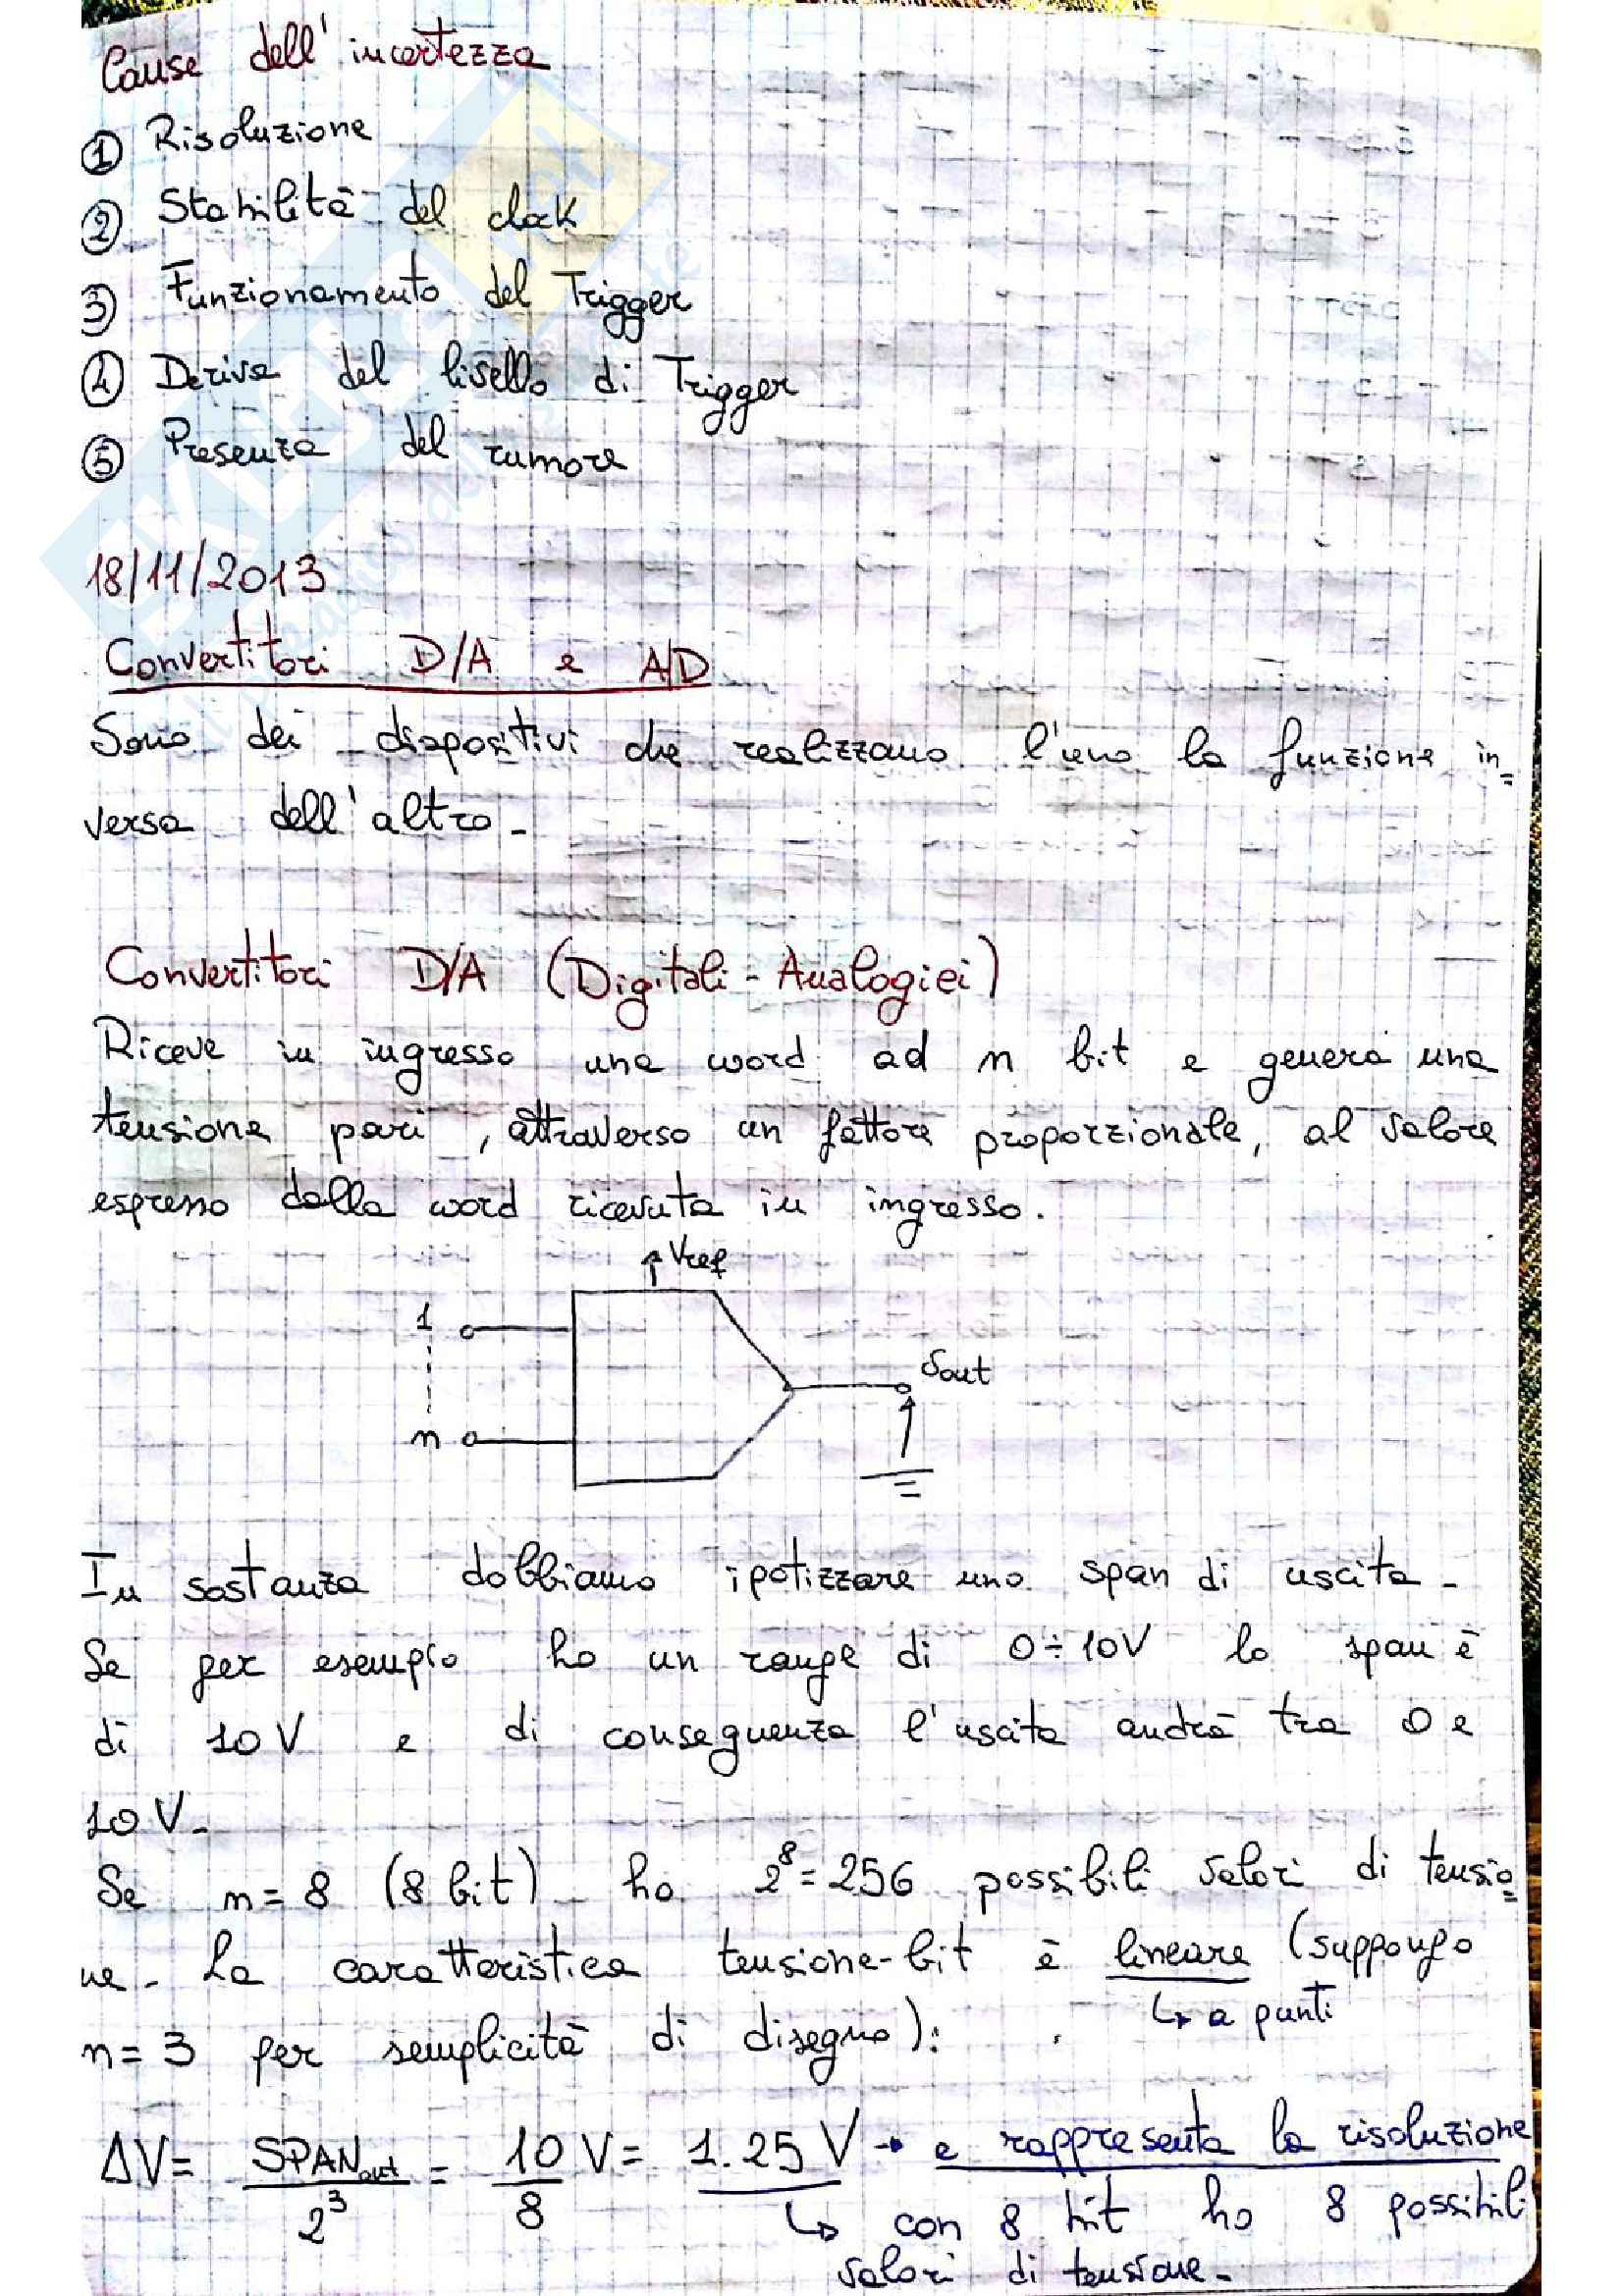 Cause dell'incertezza
① Risoluzione
② Stabilità del clock
③ Funzionamento del Trigger
④ Deriva del livello di Trigger
⑤ Presenza del rumore
18/11/2013
Convertitori D/A e A/D
Sono dei dispositivi che realizzano l'uno la funzione in=
versa dell'altro-
Convertitori D/A (Digitali-Analogici)
Riceve in ingresso una word ad n bit e genera una
tensione pari, attraverso un fattore proporzionale, al valore
espresso dalla word ricevuta in ingresso.
Vref
1
Vout
n
In sostanza dobbiamo ipotizzare uno span di uscita-
Se per esempio ho un range di 0÷10V lo span è
di 10V e di conseguenza l'uscita andrà tra 0 e
10V-
Se n=8 (8 bit) ho 2⁸=256 possibili valori di tensio=
ne- La caratteristica tensione-bit è lineare (suppongo
↳ a punti
n=3 per semplicità di disegno):
ΔV= SPANout/2³ = 10/8 V= 1.25 V → e rappresenta la risoluzione
↳ con 8 bit ho 8 possibili
valori di tensione-